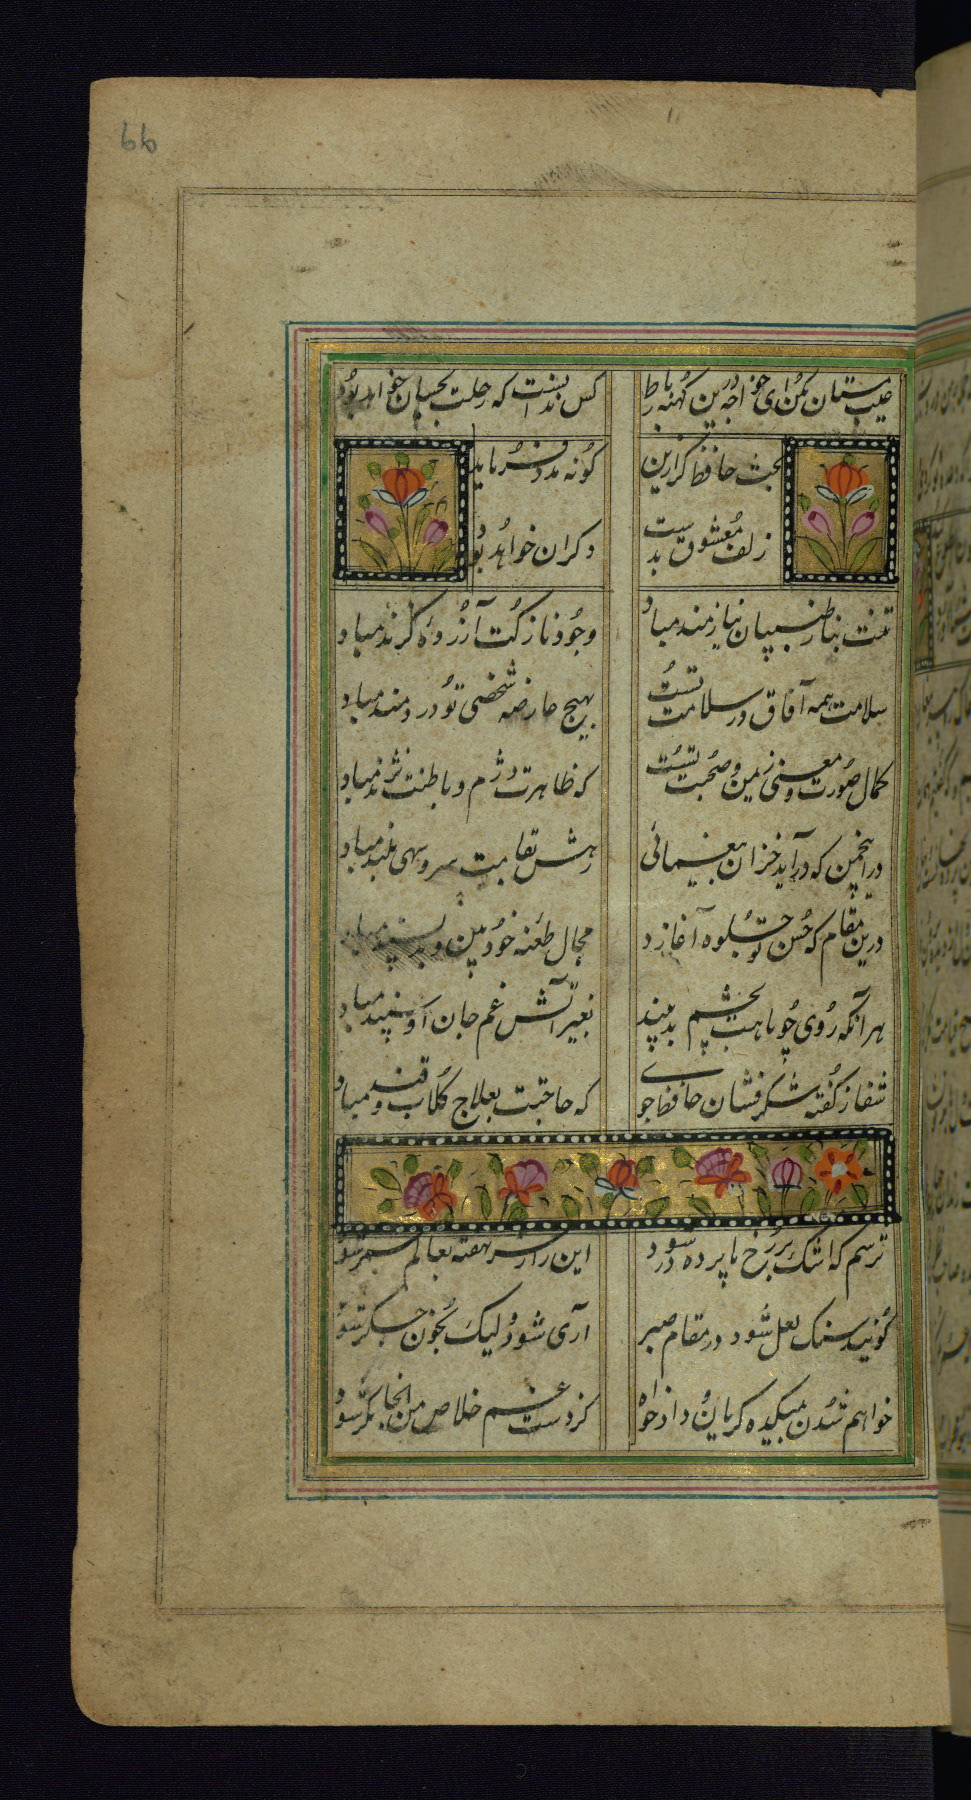 66
عیب مستان مکن ای خواجه درین کهنه رباط
کس ندانست که رحلت بچسان خواهد بود
بخت حافظ کرازین
کونه مدد فرماید
زلف معشوق بدست
دکران خواهد بود
تنت بناز طبیبان نیازمند مباد
وجود نازکت آزرده کزند مباد
سلامت همه آفاق در سلامت تست
بهیچ عارضه شخص تو دردمند مباد
کمال صورت و معنی زیمن و صحبت تست
که ظاهرت دژم و باطنت نژند مباد
در انجمن که درآید خزان بیغمائی
رهش بقامت سرو سهی بلند مباد
درین مقام که حسن تو جلوه آغازد
مجال طعنه خودبین و بدپسند مباد
هر آنکه روی چو ماهت بچشم بد بیند
بغیر آتش غم جان او سپند مباد
شفا ز کفته شکرفشان حافظ جوی
که حاجتت بعلاج کلاب و قند مباد
ترسم که اشک بر رخ ما پرده در شود
این راز سر بهفته بعالم سمر شود
کویند سنک لعل شود در مقام صبر
آری شود ولیک بخون جکر شود
خواهم شدن بمیکده کریان و دادخواه
کز دست غم خلاص من آنجا مکر شود